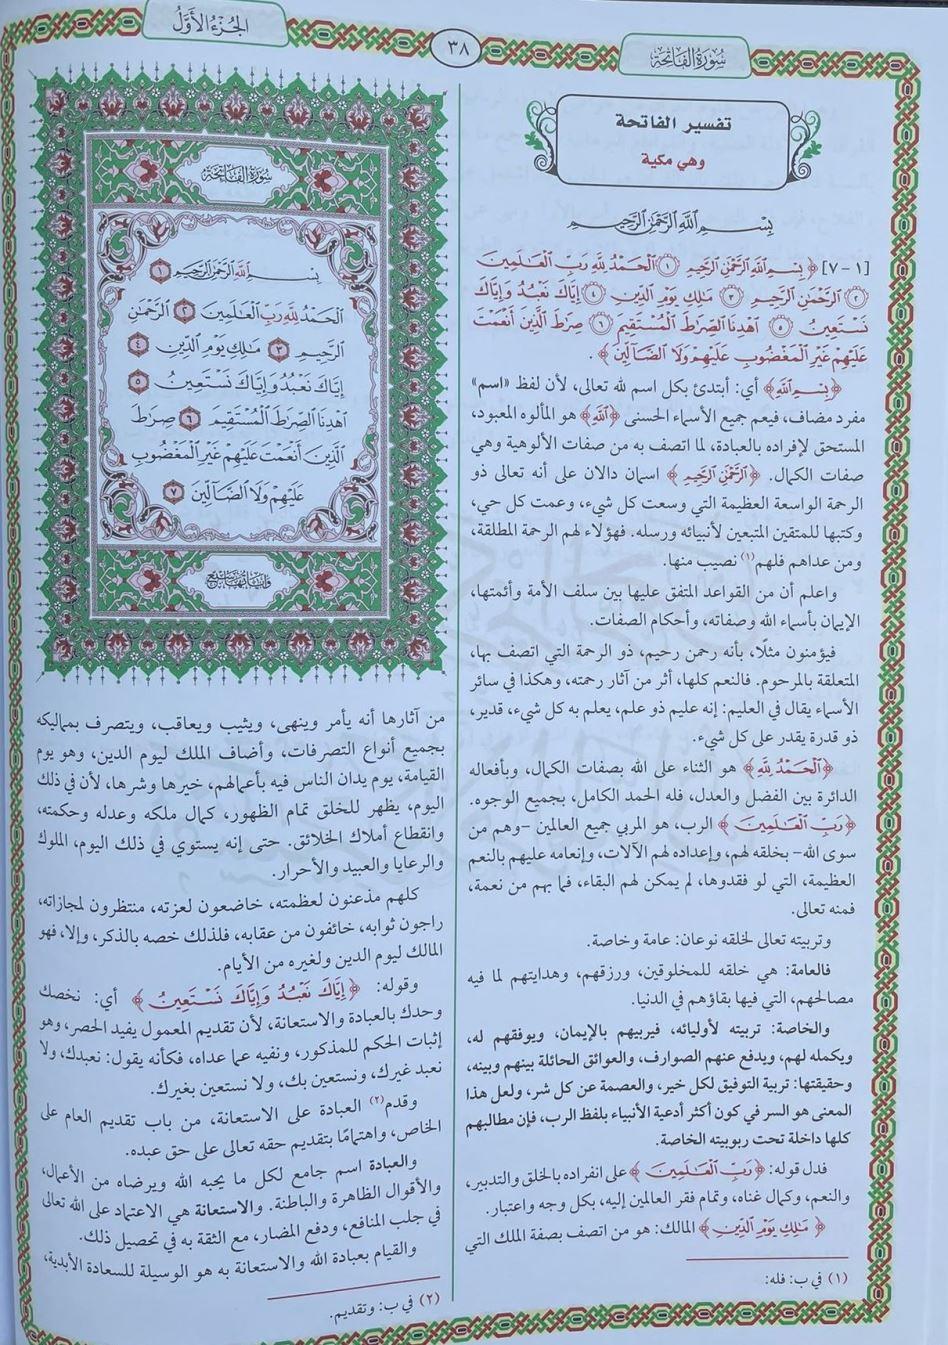 سُورَةُ الفَاتِحَةِ
٣٨
الجُزْءُ الأَوَّلُ
تفسير الفاتحة
وهي مكية
بِسْمِ اللَّهِ الرَّحْمَٰنِ الرَّحِيمِ
[١-٧] ﴿بِسْمِ اللَّهِ الرَّحْمَٰنِ الرَّحِيمِ ۝١ الْحَمْدُ لِلَّهِ رَبِّ الْعَالَمِينَ
۝٢ الرَّحْمَٰنِ الرَّحِيمِ ۝٣ مَالِكِ يَوْمِ الدِّينِ ۝٤ إِيَّاكَ نَعْبُدُ وَإِيَّاكَ
نَسْتَعِينُ ۝٥ اهْدِنَا الصِّرَاطَ الْمُسْتَقِيمَ ۝٦ صِرَاطَ الَّذِينَ أَنْعَمْتَ
عَلَيْهِمْ غَيْرِ الْمَغْضُوبِ عَلَيْهِمْ وَلَا الضَّالِّينَ﴾.
﴿بِسْمِ اللَّهِ﴾ أي: أبتدئ بكل اسم لله تعالى، لأن لفظ «اسم»
مفرد مضاف، فيعم جميع الأسماء الحسنى ﴿اللَّهِ﴾ هو المألوه المعبود،
المستحق لإفراده بالعبادة، لما اتصف به من صفات الألوهية وهي
صفات الكمال. ﴿الرَّحْمَٰنِ الرَّحِيمِ﴾ اسمان دالان على أنه تعالى ذو
الرحمة الواسعة العظيمة التي وسعت كل شيء، وعمت كل حي،
وكتبها للمتقين المتبعين لأنبيائه ورسله. فهؤلاء لهم الرحمة المطلقة،
ومن عداهم فلهم(١) نصيب منها.
واعلم أن من القواعد المتفق عليها بين سلف الأمة وأئمتها،
الإيمان بأسماء الله وصفاته، وأحكام الصفات.
فيؤمنون مثلًا، بأنه رحمن رحيم، ذو الرحمة التي اتصف بها،
المتعلقة بالمرحوم. فالنعم كلها، أثر من آثار رحمته، وهكذا في سائر
الأسماء يقال في العليم: إنه عليم ذو علم، يعلم به كل شيء، قدير،
ذو قدرة يقدر على كل شيء.
﴿الْحَمْدُ لِلَّهِ﴾ هو الثناء على الله بصفات الكمال، وبأفعاله
الدائرة بين الفضل والعدل، فله الحمد الكامل، بجميع الوجوه.
﴿رَبِّ الْعَالَمِينَ﴾ الرب، هو المربي جميع العالمين -وهم من
سوى الله- بخلقه لهم، وإعداده لهم الآلات، وإنعامه عليهم بالنعم
العظيمة، التي لو فقدوها، لم يمكن لهم البقاء، فما بهم من نعمة،
فمنه تعالى.
وتربيته تعالى لخلقه نوعان: عامة وخاصة.
فالعامة: هي خلقه للمخلوقين، ورزقهم، وهدايتهم لما فيه
مصالحهم، التي فيها بقاؤهم في الدنيا.
والخاصة: تربيته لأوليائه، فيربيهم بالإيمان، ويوفقهم له،
ويكمله لهم، ويدفع عنهم الصوارف، والعوائق الحائلة بينهم وبينه،
وحقيقتها: تربية التوفيق لكل خير، والعصمة عن كل شر، ولعل هذا
المعنى هو السر في كون أكثر أدعية الأنبياء بلفظ الرب، فإن مطالبهم
كلها داخلة تحت ربوبيته الخاصة.
فدل قوله: ﴿رَبِّ الْعَالَمِينَ﴾ على انفراده بالخلق والتدبير،
والنعم، وكمال غناه، وتمام فقر العالمين إليه، بكل وجه واعتبار.
﴿مَالِكِ يَوْمِ الدِّينِ﴾ المالك: هو من اتصف بصفة الملك التي
(١) في ب: فله:
سُورَةُ الفَاتِحَةِ
بِسْمِ اللَّهِ الرَّحْمَٰنِ الرَّحِيمِ ۝١
الْحَمْدُ لِلَّهِ رَبِّ الْعَالَمِينَ ۝٢ الرَّحْمَٰنِ
الرَّحِيمِ ۝٣ مَالِكِ يَوْمِ الدِّينِ ۝٤
إِيَّاكَ نَعْبُدُ وَإِيَّاكَ نَسْتَعِينُ ۝٥
اهْدِنَا الصِّرَاطَ الْمُسْتَقِيمَ ۝٦ صِرَاطَ
الَّذِينَ أَنْعَمْتَ عَلَيْهِمْ غَيْرِ الْمَغْضُوبِ
عَلَيْهِمْ وَلَا الضَّالِّينَ ۝٧
من آثارها أنه يأمر وينهى، ويثيب ويعاقب، ويتصرف بمماليكه
بجميع أنواع التصرفات، وأضاف الملك ليوم الدين، وهو يوم
القيامة، يوم يدان الناس فيه بأعمالهم، خيرها وشرها، لأن في ذلك
اليوم، يظهر للخلق تمام الظهور، كمال ملكه وعدله وحكمته،
وانقطاع أملاك الخلائق. حتى إنه يستوي في ذلك اليوم، الملوك
والرعايا والعبيد والأحرار.
كلهم مذعنون لعظمته، خاضعون لعزته، منتظرون لمجازاته،
راجون ثوابه، خائفون من عقابه، فلذلك خصه بالذكر، وإلا، فهو
المالك ليوم الدين ولغيره من الأيام.
وقوله: ﴿إِيَّاكَ نَعْبُدُ وَإِيَّاكَ نَسْتَعِينُ﴾ أي: نخصك
وحدك بالعبادة والاستعانة، لأن تقديم المعمول يفيد الحصر، وهو
إثبات الحكم للمذكور، ونفيه عما عداه، فكأنه يقول: نعبدك، ولا
نعبد غيرك، ونستعين بك، ولا نستعين بغيرك.
وقدم(٢) العبادة على الاستعانة، من باب تقديم العام على
الخاص، واهتمامًا بتقديم حقه تعالى على حق عبده.
والعبادة اسم جامع لكل ما يحبه الله ويرضاه من الأعمال،
والأقوال الظاهرة والباطنة. والاستعانة هي الاعتماد على الله تعالى
في جلب المنافع، ودفع المضار، مع الثقة به في تحصيل ذلك.
والقيام بعبادة الله والاستعانة به هو الوسيلة للسعادة الأبدية،
(٢) في ب: وتقديم.